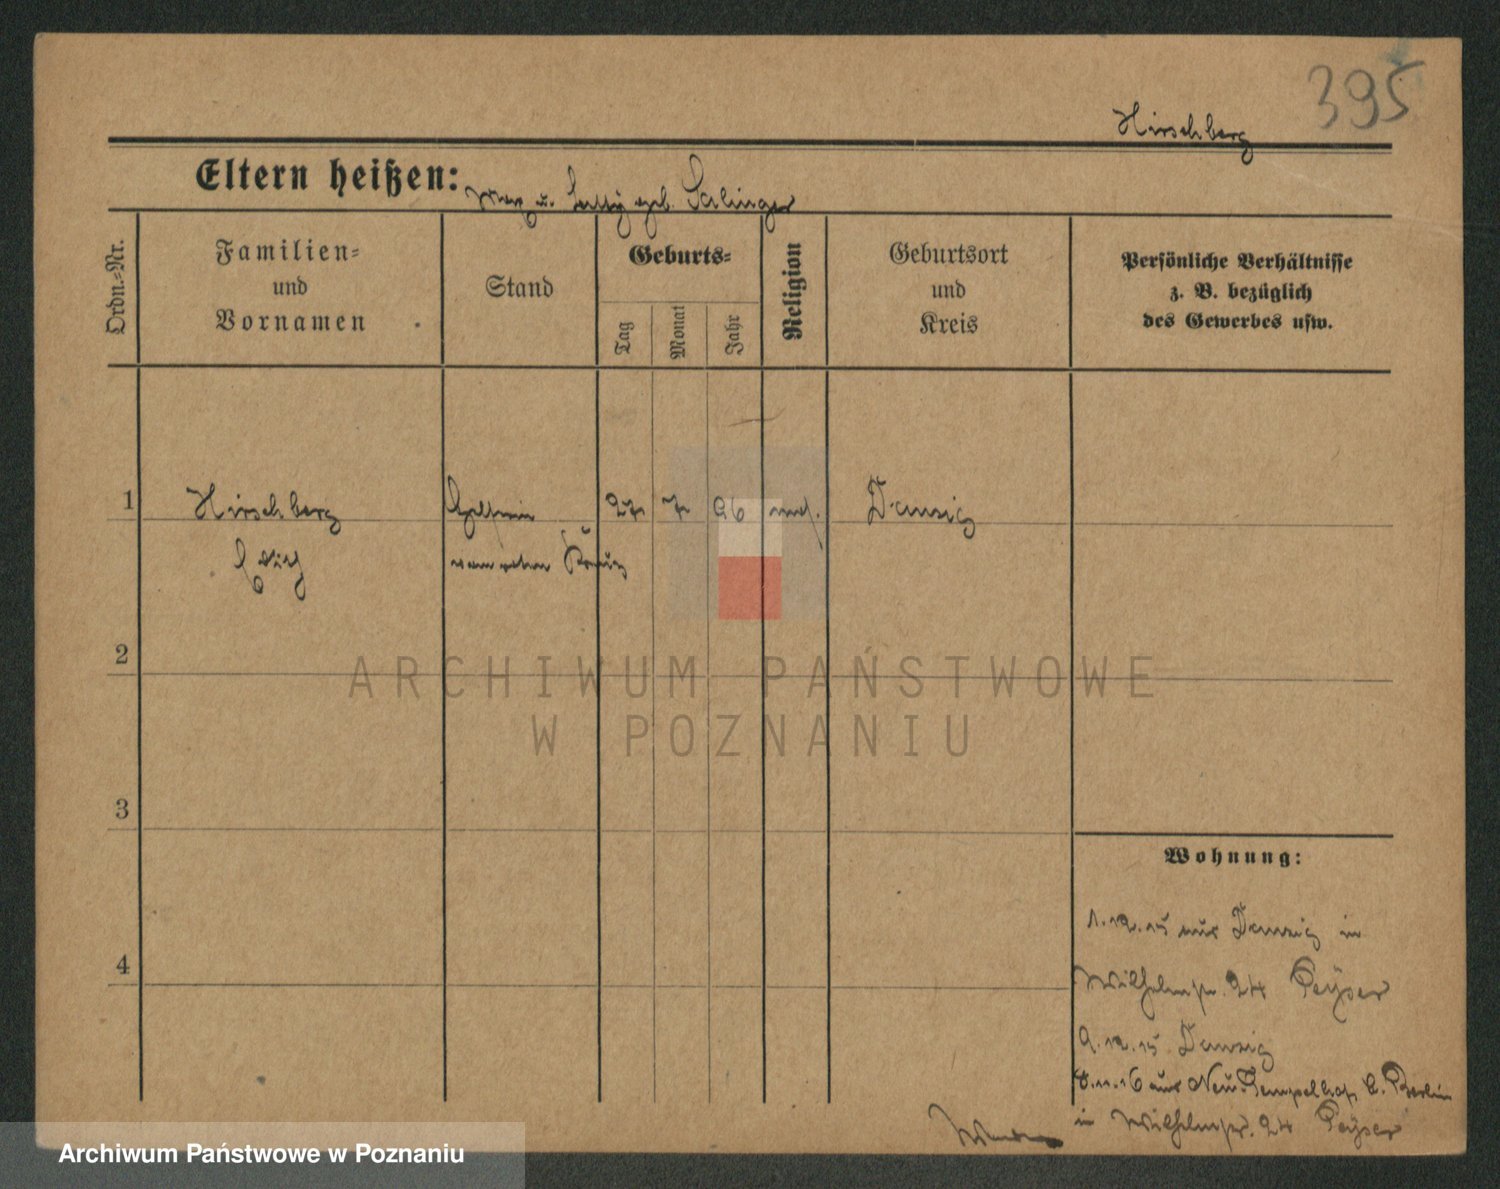 395
Hirschberg
Eltern heißen: Max u. geb. Salinger
Ordn.=Nr.
Familien=
und
Vornamen
Stand
Geburts=
Tag
Monat
Jahr
Religion
Geburtsort
und
Kreis
Persönliche Verhältnisse
z. B. bezüglich
des Gewerbes usw.
1 Hirschberg Helferin 27 7 96 mos. Danzig
vom roten Kreuz
2
3
4
ARCHIWUM PAŃSTWOWE
W POZNANIU
Wohnung:
1.12.15 aus Danzig in
Wilhelmstr. 24 Peÿser
9.12.15 Danzig
8.11.16 aus Neu-Tempelhof b. Berlin
in Wilhelmstr. 24 Peÿser
Archiwum Państwowe w Poznaniu